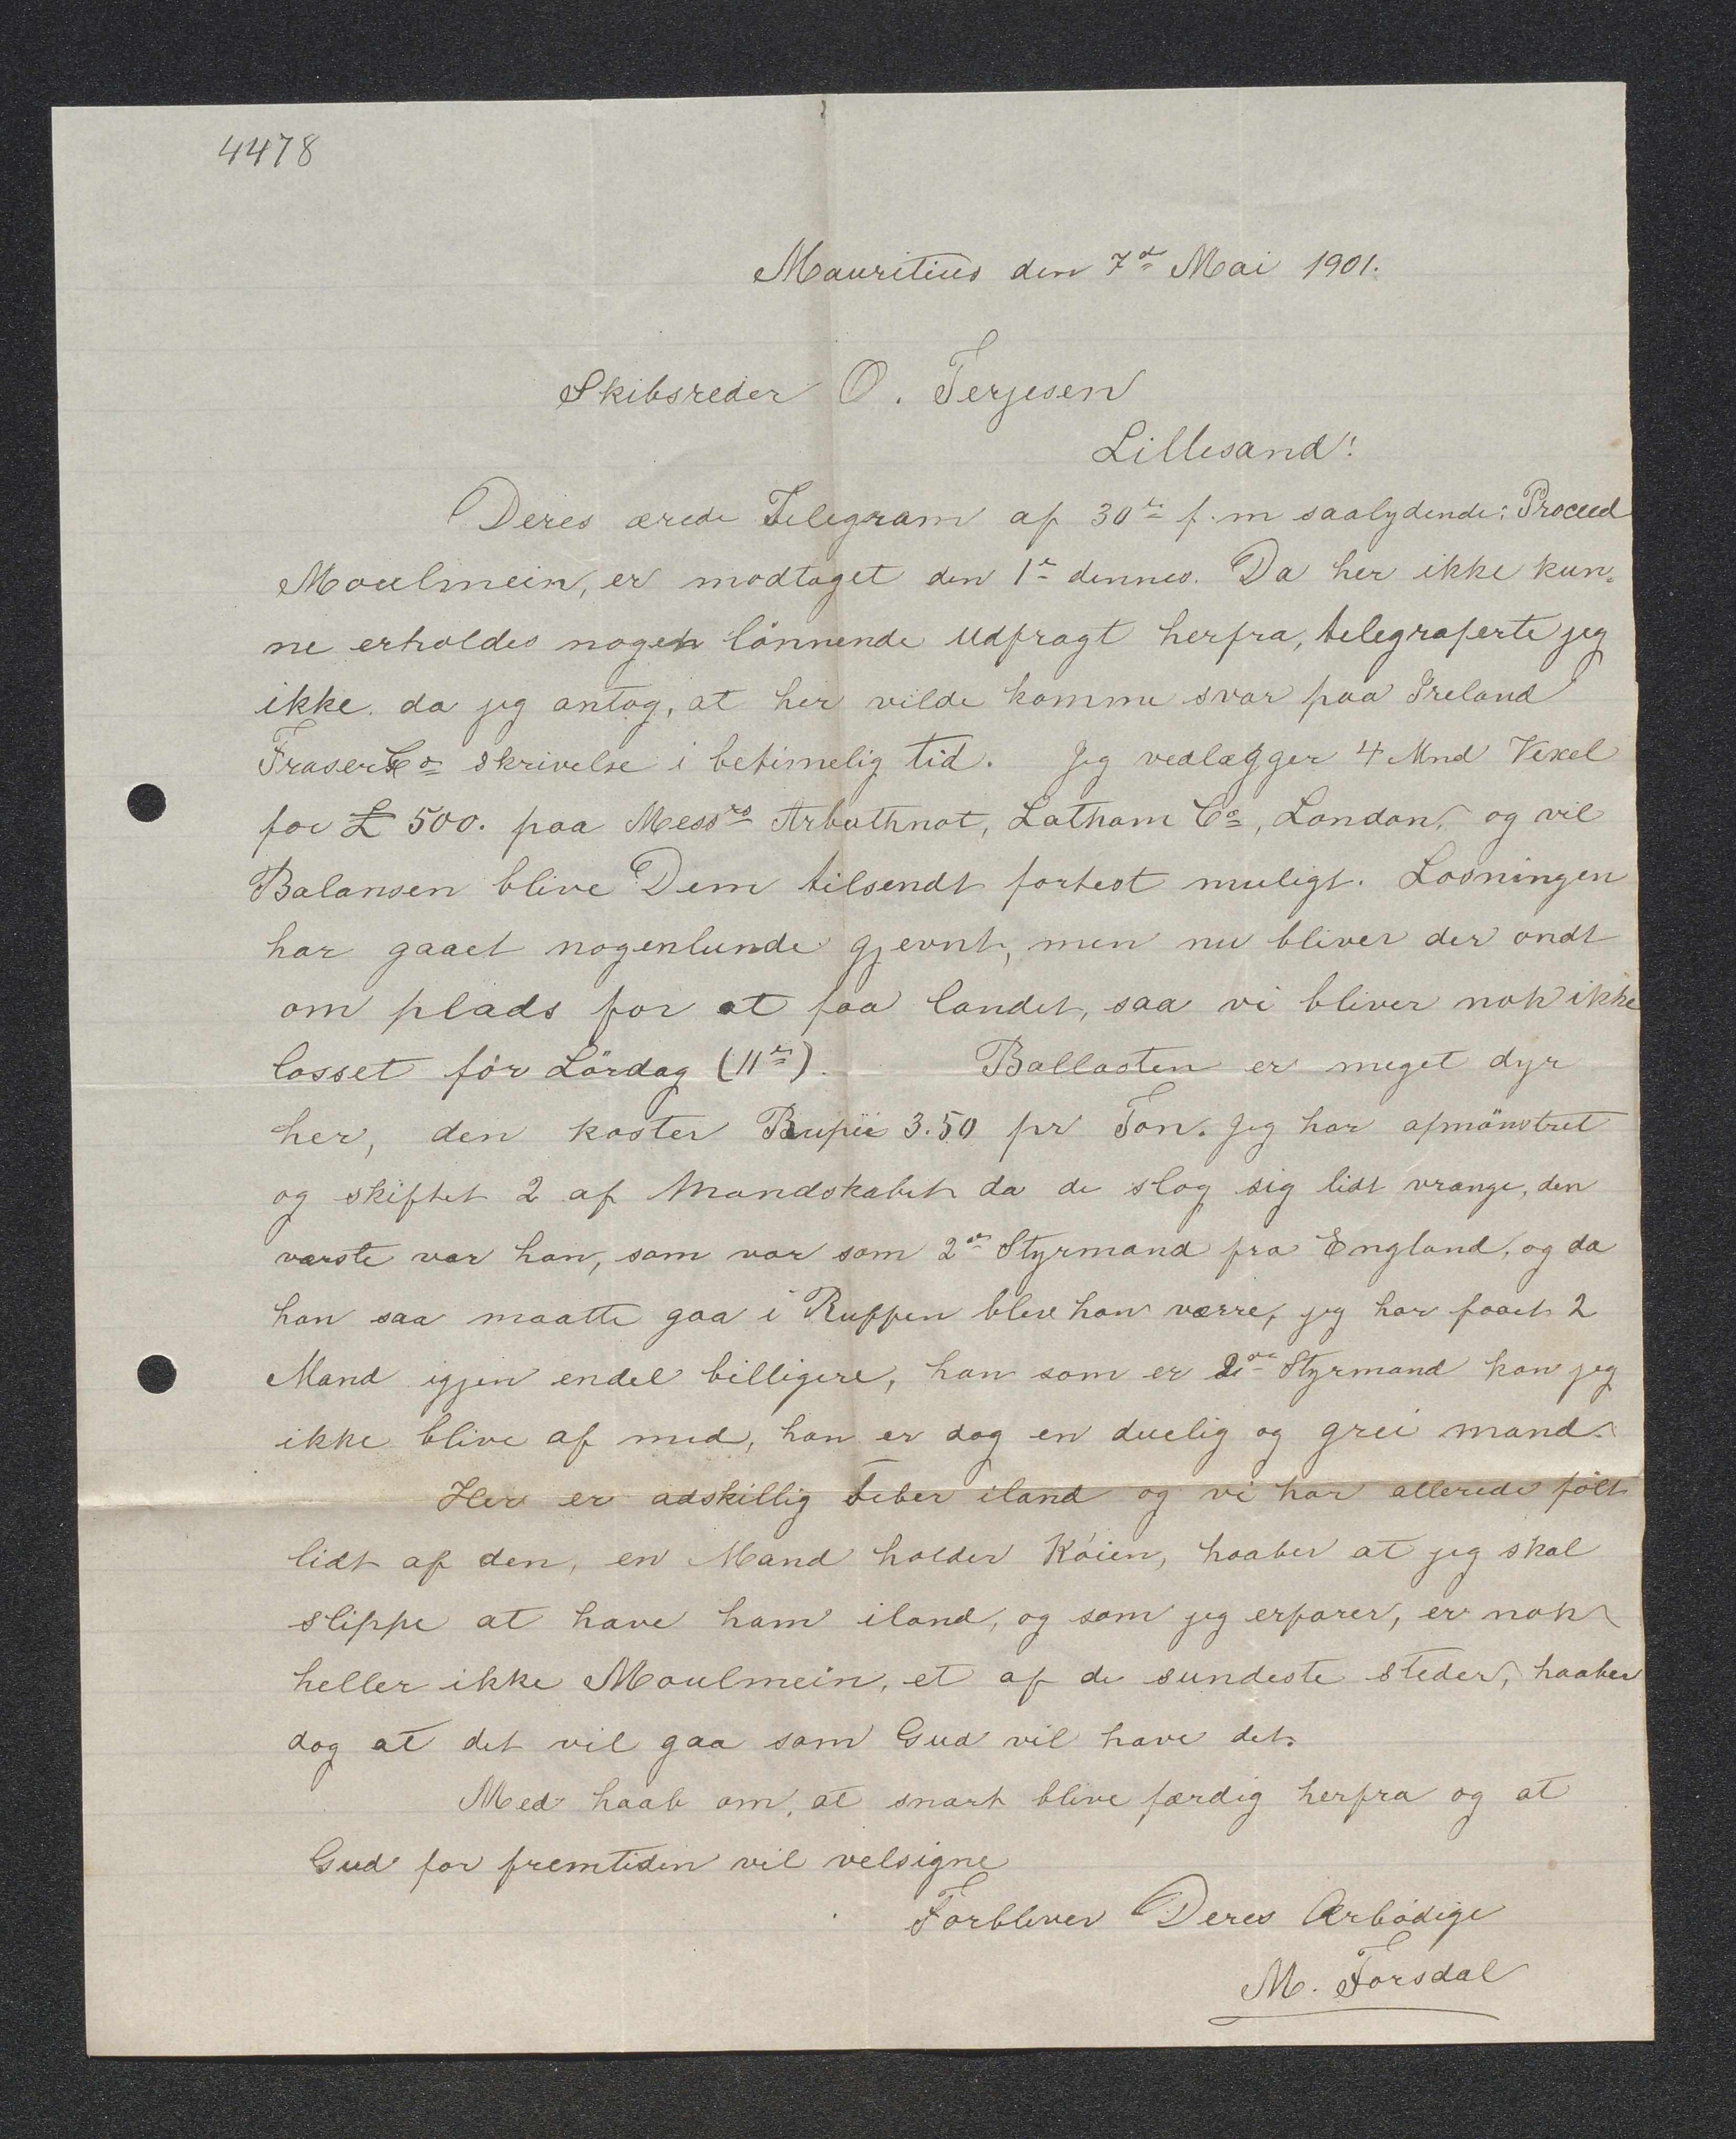 4478
Mauritius den 7de Mai 1901.
Skibsreder O. Terjesen
Lillesand!
Deres ærede Telegram af 30te f.m saalydende: Proceed
Moulmein, er modtaget den 1te dennes. Da her ikke kun-
ne erholdes nogen lönnende Udfragt herfra, telegraferte jeg
ikke. da jeg antog, at her vilde komme svar paa Ireland
Fraser & Co skrivelse i betimelig tid. Jeg vedlægger 4 Mnd Vexel
for £ 500. paa Messrs Arbuthnot, Latham Co, London, og vil
Balansen blive Dem tilsendt fortest muligt. Losningen
har gaaet nogenlunde gjevnt, men nu bliver der ondt
om plads for at faa landet, saa vi bliver nok ikke
losset för Lördag (11te). Ballasten er meget dyr
her, den koster Rupii 3.50 pr Ton. Jeg har afmönstret
og skiftet 2 af Mandskabet da de slog sig lidt vrange, den
værste var han, som var som 2den Styrmand fra England, og da
han saa maatte gaa i Ruffen blev han værre, jeg har faaet 2
Mand igjen endel billigere, han som er 2den Styrmand kan jeg
ikke blive af med, han er dog en duelig og grei mand.
Her er adskillig Feber iland og vi har allerede fölt
lidt af den, en Mand holder Köien, haaber at jeg skal
slippe at have ham iland, og som jeg erfarer, er nok
heller ikke Moulmein, et af de sundeste steder, haaber
dog at det vil gaa som Gud vil have det.
Med haab om, at snart blive færdig herfra og at
Gud for fremtiden vil velsigne
Forbliver Deres Ærbödige
M. Forsdal